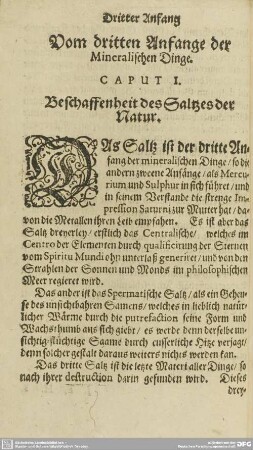 Dritter Anfang
Vom dritten Anfange der
Mineralischen Dinge.
CAPUT I.
Beschaffenheit des Saltzes der
Natur.
DAs Saltz ist der dritte An-
fang der mineralischen Dinge / so die
andern zweene Anfänge / als Mercu-
rium und Sulphur in sich führet / und
in seinem Verstande die strenge Im-
pression Saturni zur Mutter hat / da-
von die Metallen ihren Leib empfahen. Es ist aber das
Saltz dreyerley / erstlich das Centralische / welches im
Centro der Elementen durch qualificirung der Sternen
vom Spiritu Mundi ohn unterlaß generiret / und von den
Strahlen der Sonnen und Monds im philosophischen
Meer regieret wird.
Das ander ist das Spermatische Saltz / als ein Geheu-
se des unsichtbahren Samens / welches in lieblich natür-
licher Wärme durch die putrefaction seine Form und
Wachsthumb aus sich giebt / es werde denn derselbe un-
sichtig-flüchtige Saame durch eusserliche Hitz verjagt /
denn solcher gestalt daraus weiters nichts werden kan.
Das dritte Saltz ist die letzte Materi aller Dinge / so
nach ihrer destruction darin gefunden wird. Dieses
drey-